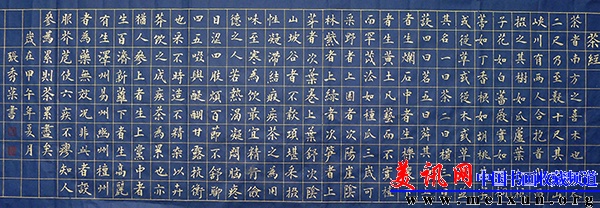 茶經
茶者南方之嘉木也
二尺乃至數十尺其
峽川有兩人合抱者
掇之其樹如瓜蘆
子花如白薔薇實如
葉如丁香根如胡桃
或從草或從木或
其名一曰茶二曰
蔎四曰茗五曰荈其
者生爛石中者生礫壤
而罕茂法如種瓜三歲可
采野者上園者次陽崖陰
林紫者上綠者次筍者上
芽者次葉卷上葉舒次陰
山坡谷者不堪采掇
性凝滯結瘕疾
味至寒為飲最宜精行儉
德之人若熱渴凝悶腦疼
目澀四肢煩百節不舒聊
四五啜與醍醐甘露抗衡
也采不時造不精雜以卉
莽飲之成疾茶為累也亦
猶人參上者生上黨中者
生百濟新羅下者生高麗
有生澤州易州幽州檀州
者為藥無效況非此者設
服薺苨使六疾不瘳知人
參為累則茶累盡矣
歲在甲午年亥月
張香榮書
美讯网
中国书画收藏频道
www.meixun.org